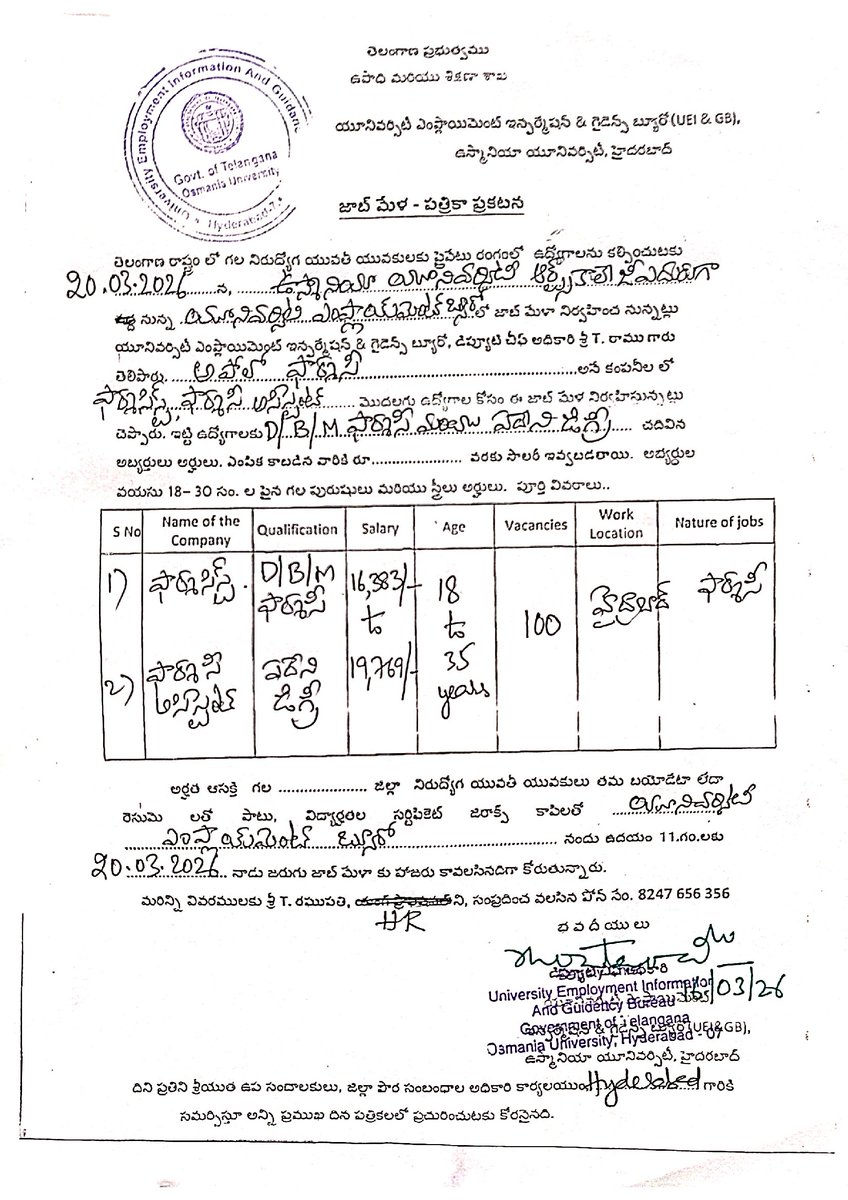 తెలంగాణ ప్రభుత్వము
ఉపాధి మరియు శిక్షణా శాఖ
యూనివర్సిటీ ఎంప్లాయిమెంట్ ఇన్ఫర్మేషన్ & గైడెన్స్ బ్యూరో(UEI & GB),
ఉస్మానియా యూనివర్సిటీ, హైదరబాద్
University Employment Information And Guidanc
Govt. of Telangana
Osmania University
Hyderabad-7
జాబ్ మేళ - పత్రికా ప్రకటన
తెలంగాణ రాష్ట్రం లో గల నిరుద్యోగ యువతీ యువకులకు ప్రైవేటు రంగంలో ఉద్యోగాలను కల్పించుటకు
20.03.2026 న, ఉస్మానియా యూనివర్సిటీ ఆర్ట్స్ కాలేజీ ఎదురుగా
నున్న యూనివర్సిటీ ఎంప్లాయ్‌మెంట్ బ్యూరో లో జాబ్ మేళా నిర్వహించ నున్నట్లు
యూనివర్సిటీ ఎంప్లాయిమెంట్ ఇన్ఫర్మేషన్ & గైడెన్స్ బ్యూరో, డెప్యూటీ చీఫ్ అధికారి శ్రీ T. రాము గారు
తెలిపారు. అపోలో ఫార్మసీ అన కంపనీల లో
ఫార్మాసిస్ట్, ఫార్మాసీ అసిస్టెంట్ మొదలగు ఉద్యోగాల కోసం ఈ జాబ్ మేళ నిరర్హిస్తున్నట్లు
చెప్పారు. ఇట్టి ఉద్యోగాలకు D/B/M ఫార్మాసీ మరియు ఏదేని డిగ్రీ చదివిన
అబ్యర్తులు అర్హులు. ఎంపిక కాబడిన వారికి రూ.................... వరకు సాలరీ ఇవ్వబడరాయి. అబ్యర్థుల
వయసు 18– 30 సం. ల పైన గల పురుషులు మరియు స్త్రీలు అర్హులు. పూర్తి వివరాలు..
S No | Name of the Company | Qualification | Salary | Age | Vacancies | Work Location | Nature of jobs
1) ఫార్మాసిస్ట్ D/B/M ఫార్మాసీ 16,383/- to 18 to 100 హైద్రాబాద్ ఫార్మాసీ
2) ఫార్మాసీ అసిస్టెంట్ ఏదేని డిగ్రీ 19,769/- 35 years
అర్హత ఆసక్తి గల .................... జిల్లా నిరుద్యోగ యువతీ యువకులు తమ బయోడేటా లేదా
రెసుమె లతో పాటు, విద్యార్హతల సర్టిఫికెట్ జిరాక్స్ కాపిలతో యూనివర్సిటీ
ఎంప్లాయ్‌మెంట్ బ్యూరో నందు ఉదయం 11.గం.లకు
20.03.2026 నాడు జరుగు జాబ్ మేళా కు హాజరు కావలసినదిగా కోరుతున్నారు.
మరిన్ని వివరములకు శ్రీ T. రఘుపతి, ని, సంప్రదించ వలసిన పోన్ నెం. 8247 656 356
HR
భవదీయులు
16/03/26
University Employment Information
And Guidency Bureau
Government of Telangana
Osmania University, Hyderabad - 07
ఉస్మానియా యూనివర్సిటీ, హైదరబాద్
దిని ప్రతిని శ్రీయుత ఉప సందాలకులు, జిల్లా పౌర సంబంధాల అధికారి కార్యలయం Hyderabad గారికి
సమర్పిస్తూ అన్ని ప్రముఖ దిన పత్రికలలో ప్రచురించుటకు కోరనైనది.